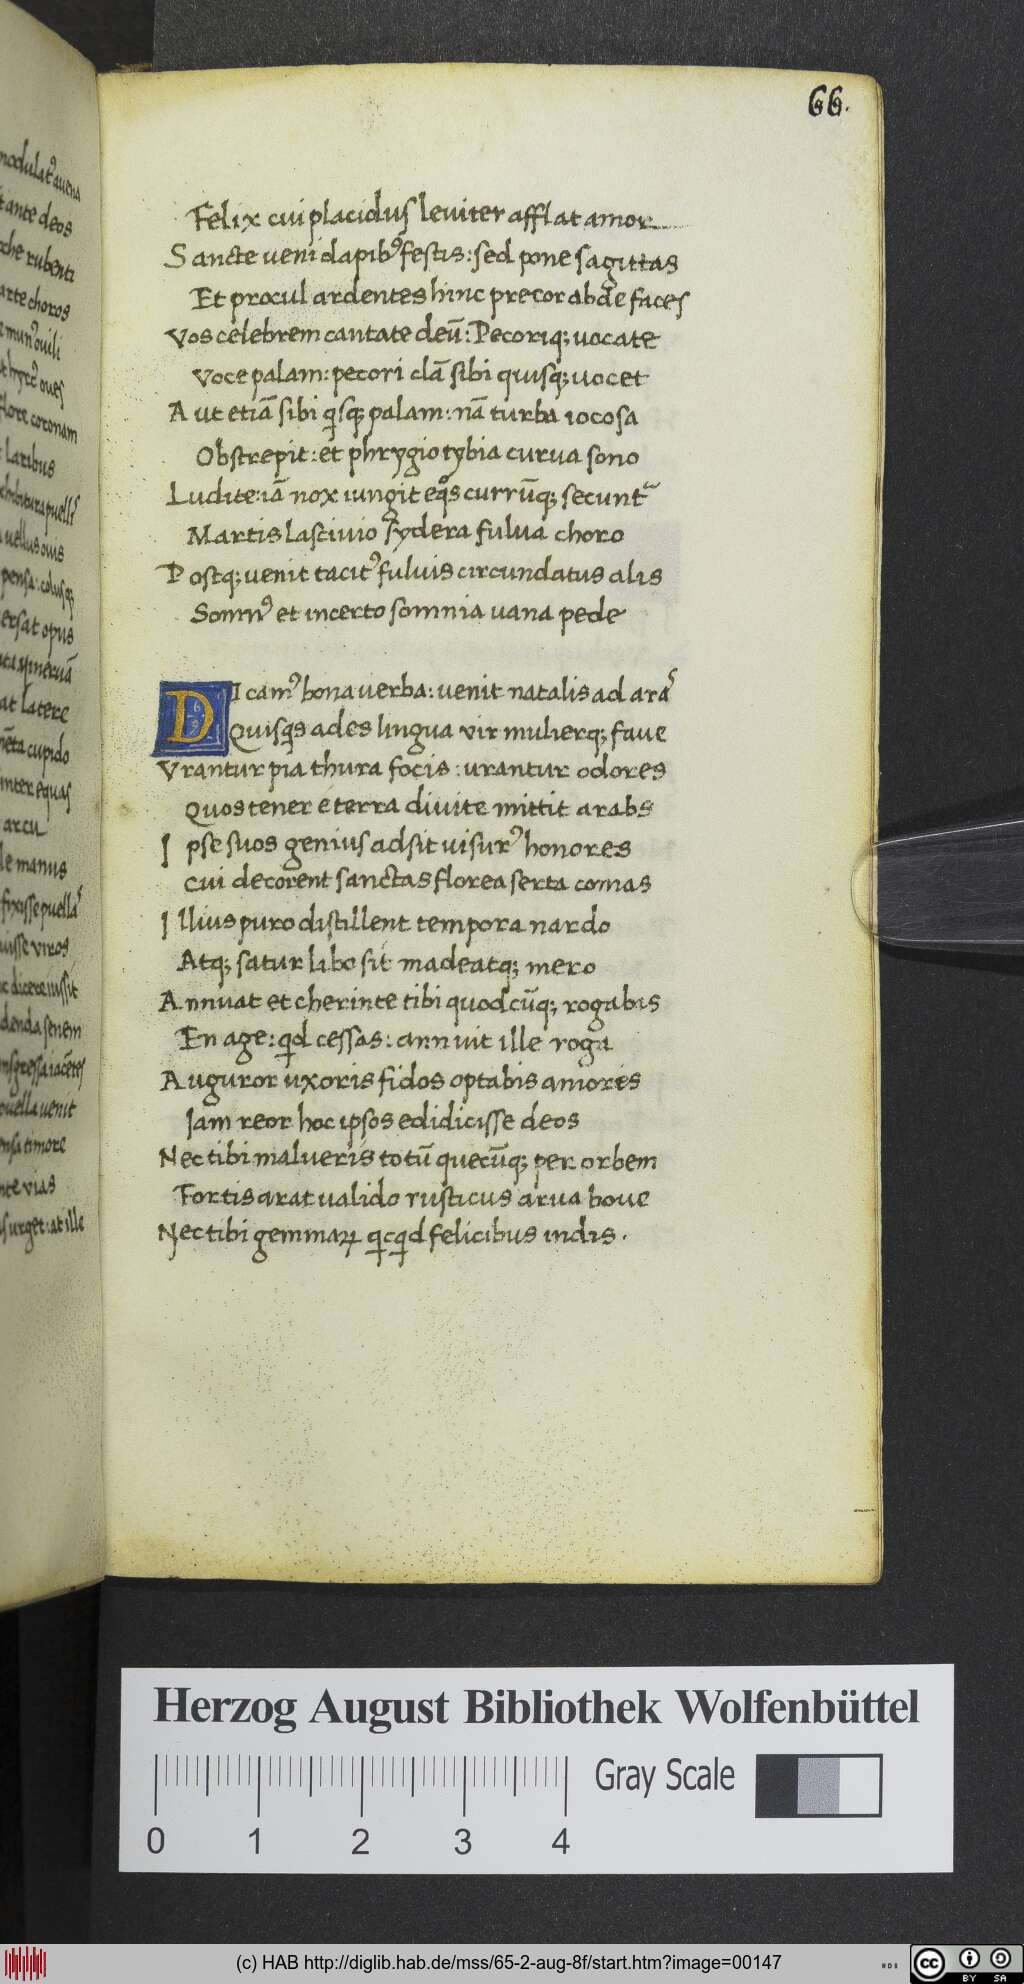 modulat᾽ auena
ante deos
rubenti
arte choros
mun᾽ ouili
hyrc᾽ oues
flore coronam
laribus
uellus ouis
pensa: colusq;
ersat opus
at latere
cupido
inter equas
arcu
le manus
fixisse puellas
uisse viros
dicere iussit
denda senem
puella uenit
ensa timore
nte vias
surget: at ille
66.
Felix cui placidus leniter afflat amor
Sancte ueni dapib᾽ festis: sed pone sagittas
Et procul ardentes hinc precor abde faces
Vos celebrem cantate deū: Pecoriq; uocate
Voce palam: pecori clā sibi quisq; uocet
Aut etiā sibi qsq; palam: nā turba iocosa
Obstrepit: et phrygio tybia curua sono
Ludite: iā nox iungit eqos currūq; secuntᵃ
Martis lasciuio sydera fulua choro
Postq; uenit tacit᾽ fuluis circundatus alis
Somn᾽ et incerto somnia uana pede
DIcam᾽ bona uerba: uenit natalis ad arās
Quisqs ades lingua vir mulierq; faue
Vrantur pia thura focis: urantur odores
Quos tener e terra diuite mittit arabs
Ipse suos genius adsit uisur᾽ honores
Cui decorent sanctas florea serta comas
Illius puro distillent tempora nardo
Atq; satur libo sit madeatq; mero
Annuat et cherinte tibi quodcūq; rogabis
En age: qd cessas: annuit ille roga
Auguror uxoris fidos optabis amores
Iam reor hoc ipsos edidicisse deos
Nec tibi malueris totū quecūq; per orbem
Fortis arat ualido rusticus arua boue
Nec tibi gemmaꝝ qcqd felicibus indis.
Herzog August Bibliothek Wolfenbüttel
Gray Scale
0 1 2 3 4
(c) HAB http://diglib.hab.de/mss/65-2-aug-8f/start.htm?image=00147
cc BY SA